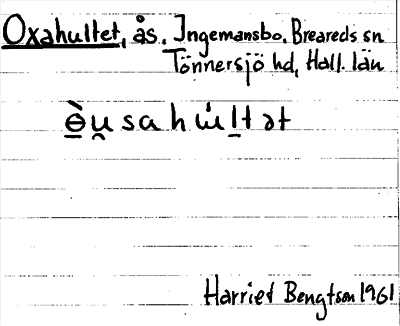 Oxahultet, ås. Ingemansbo. Breareds sn
Tönnersjö hd, Hall. län
ɵ̠̀u̯sahu̇l̠tət
Harriet Bengtson 1961